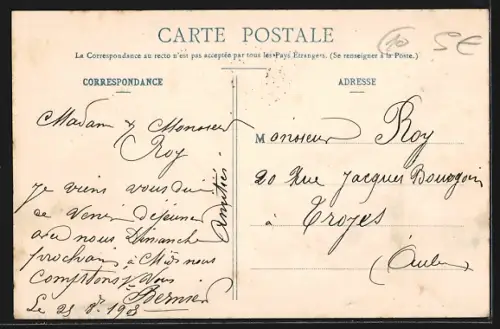 CARTE POSTALE
La Correspondance au recto n'est pas acceptée par tous les Pays Étrangers. (Se renseigner à la Poste.)
CORRESPONDANCE
ADRESSE
5€
Madam & Monsieur
Roy
je viens vous dire
de venir déjeuner
avec nous Dimanche
prochain à Midi nous
comptons s/ Vous
Bernier
Le 23
Amitiés
Monsieur Roy
20 Rue Jacques Bourgoin
à Troyes
(Aube)